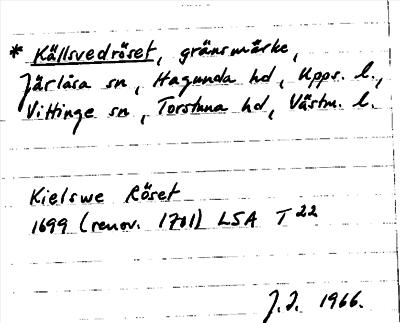 * Källsvedröset, gränsmärke,
Järlåsa sn, Hagunda hd, Upps. l.,
Vittinge sn, Torstuna hd, Västm. l.
Kielswe Röset
1699 (renov. 1701) LSA T 22
J.I. 1966.